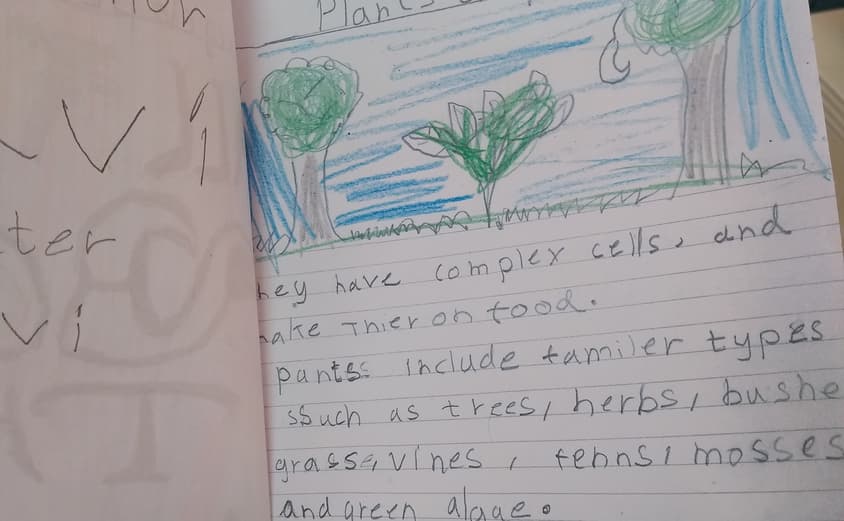 Plants
ter
vi
hey have complex cells, and
ake Thier on food.
pants: include familer types
ssuch as trees, herbs, bushe
grass, vines, fenns, mosses
and green algae.